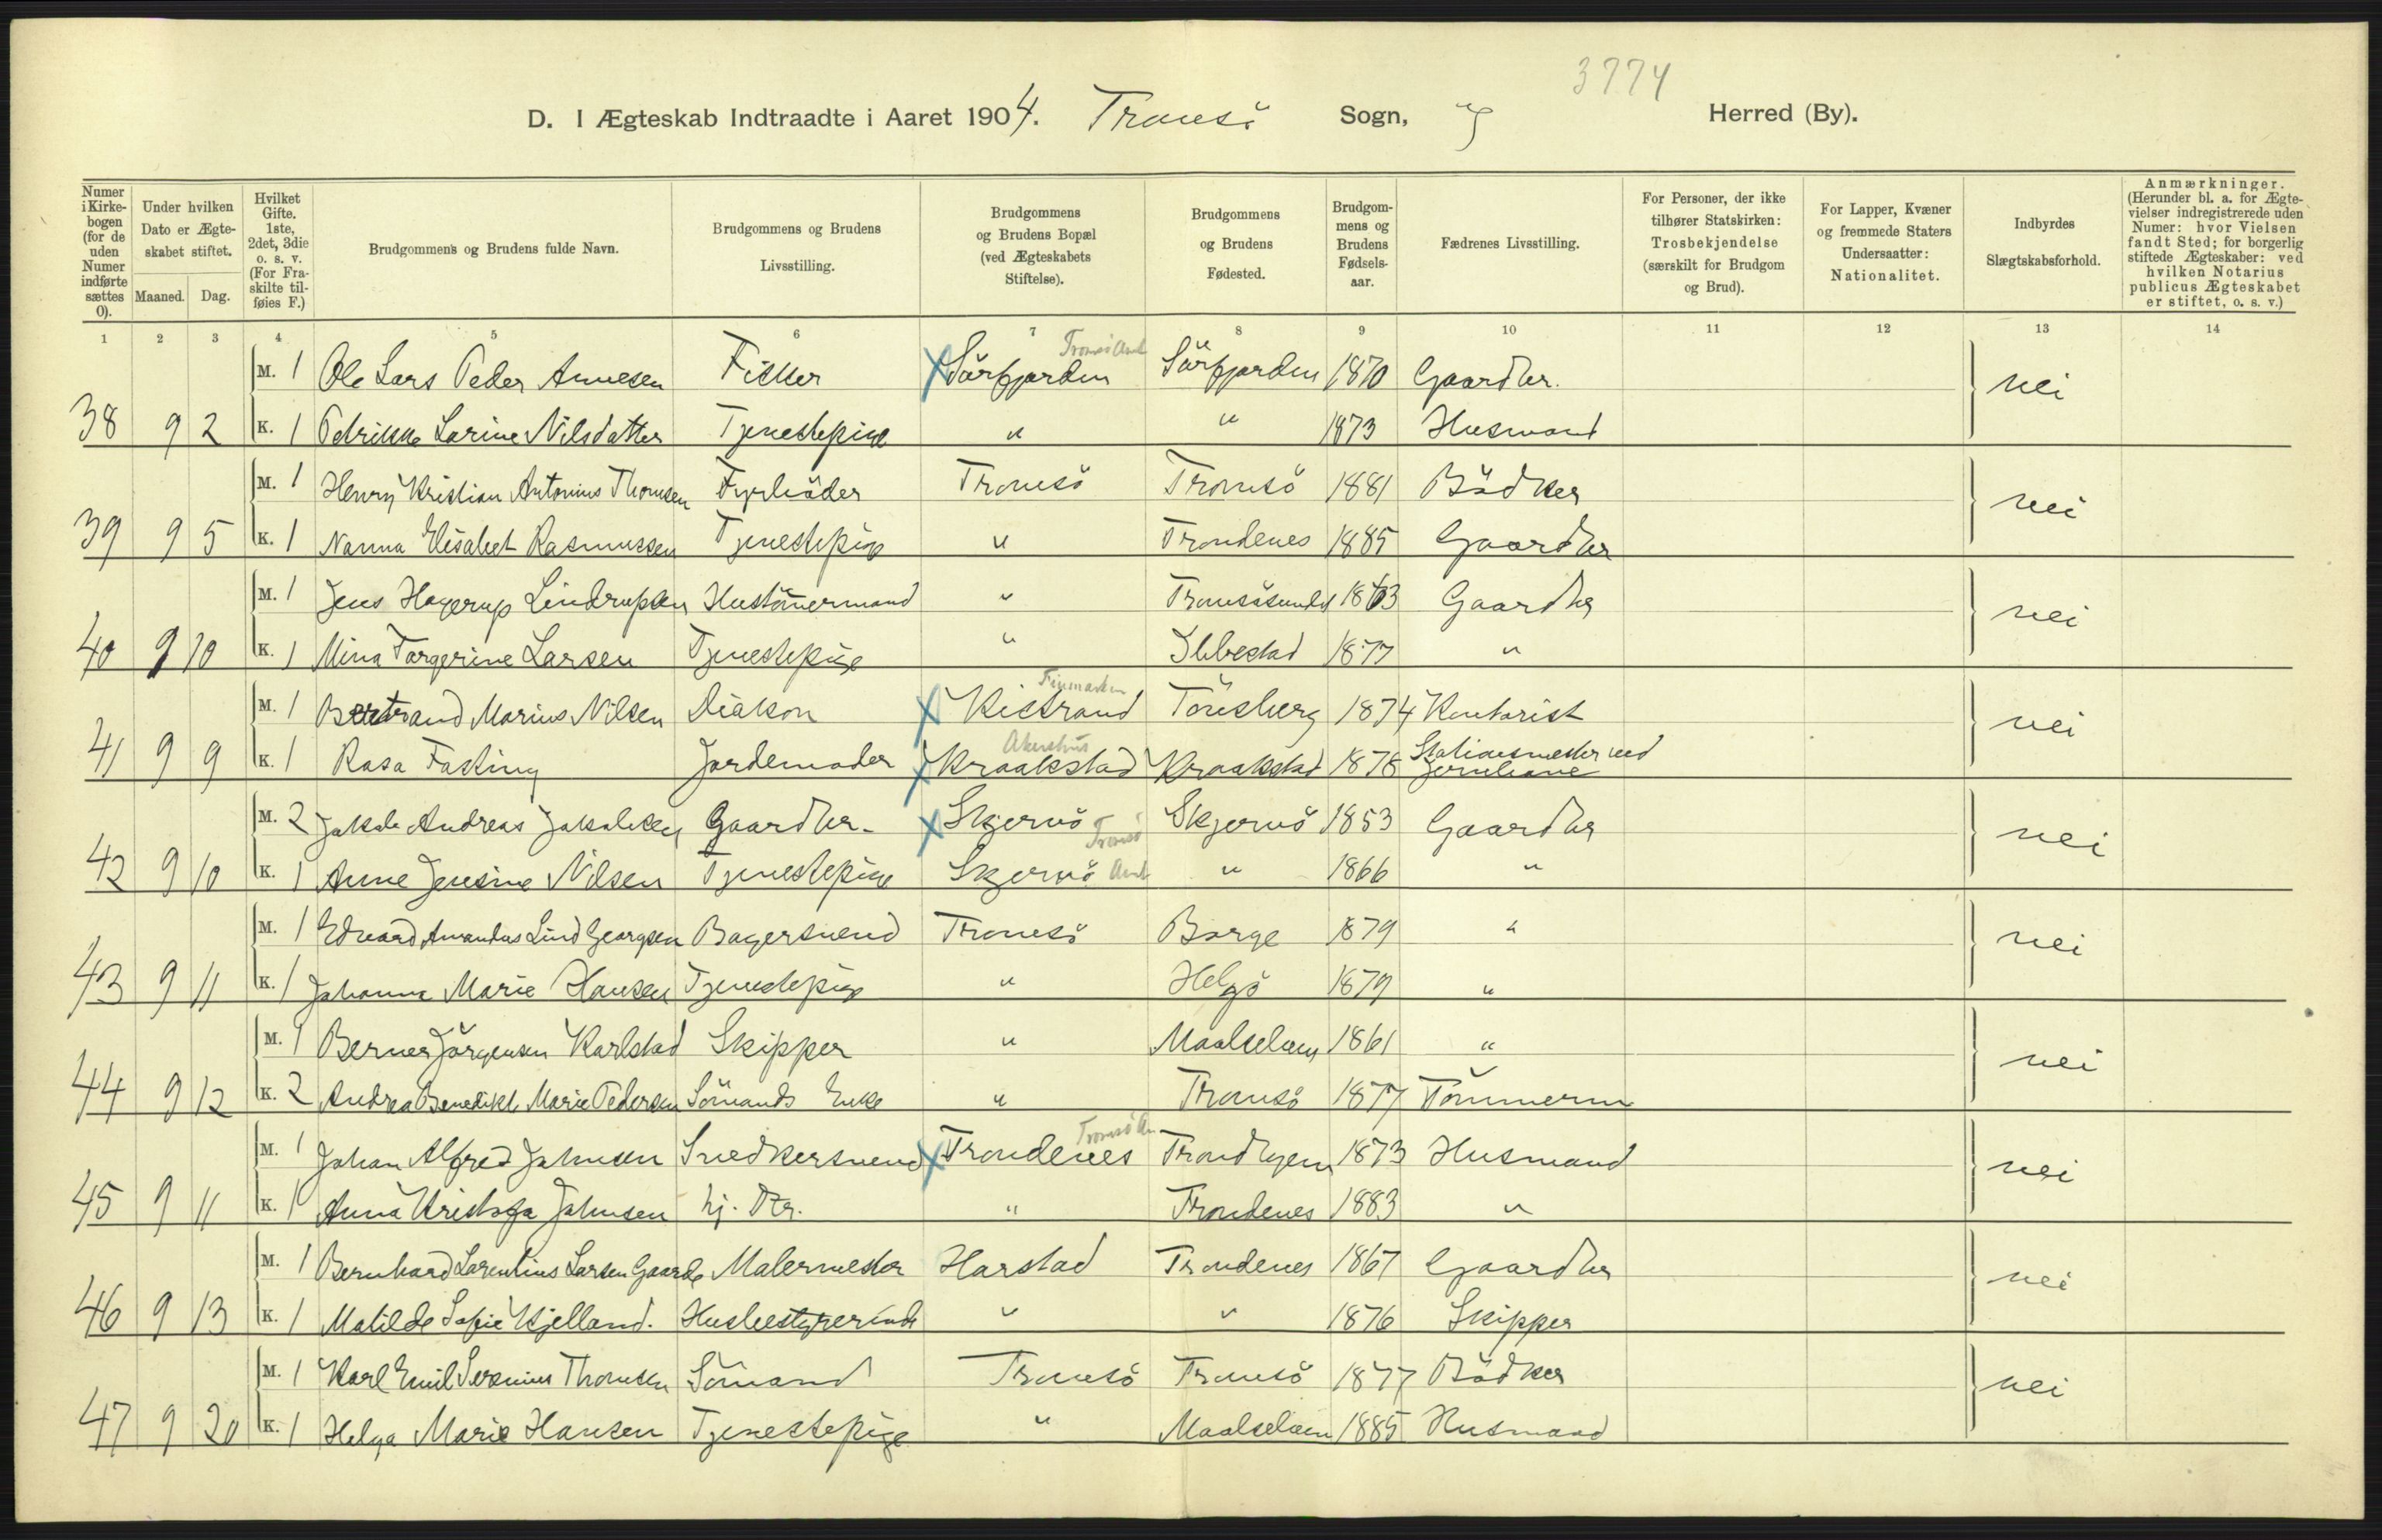 3774
D. I Ægteskab Indtraadte i Aaret 1904. Tromsö Sogn, Herred (By).
Numer i Kirkebogen (for de uden Numer indførte sættes 0).
Under hvilken Dato er Ægteskabet stiftet.
Maaned. Dag.
Hvilket Gifte. 1ste, 2det, 3die o. s. v. (For Fraskilte tilføies F.)
Brudgommens og Brudens fulde Navn.
Brudgommens og Brudens Livsstilling.
Brudgommens og Brudens Bopæl (ved Ægteskabets Stiftelse).
Brudgommens og Brudens Fødested.
Brudgommens og Brudens Fødselsaar.
Fædrenes Livsstilling.
For Personer, der ikke tilhører Statskirken: Trosbekjendelse (særskilt for Brudgom og Brud).
For Lapper, Kvæner og fremmede Staters Undersaatter: Nationalitet.
Indbyrdes Slægtskabsforhold.
Anmærkninger. (Herunder bl. a. for Ægtevielser indregistrerede uden Numer: hvor Vielsen fandt Sted; for borgerlig stiftede Ægteskaber: ved hvilken Notarius publicus Ægteskabet er stiftet, o. s. v.)
1 2 3 4 5 6 7 8 9 10 11 12 13 14
M. 1 Ole Lars Peder Arnesen Fisker Sörfjorden Tromsö Amt Sörfjorden 1870 Gaardbr. nei
38 9 2 K. 1 Petrikke Larine Nilsdatter Tjenestepige " " 1873 Husmand
M. 1 Henry Kristian Antonius Thomsen Fyrböder Tromsö Tromsö 1881 Bödker nei
39 9 5 K. 1 Nanna Elisabet Rasmussen Tjenestepige " Trondenes 1885 Gaardbr
M. 1 Jens Hagerup Lindrupsen Hustömermand " Tromsösundet 1863 Gaardbr nei
40 9 10 K. 1 Mina Torgerine Larsen Tjenestepige " Ibbestad 1877 "
M. 1 Bertrand Marius Nilsen Diakon Kistrand Finmarken Tönsberg 1874 Kontorist nei
41 9 9 K. 1 Rasa Fasting Jordemoder Kraakstad Akershus Kraakstad 1878 Stationsmester ved Jernbane
M. 2 Jakob Andreas Jakobsen Gaardbr. Skjervö Tromsö Skjervö 1853 Gaardbr nei
42 9 10 K. 1 Anne Jensine Nilsen Tjenestepige Skjervö Amt " 1866 "
M. 1 Edvard Amandus Lind Georgsen Bagersvend Tromsö Borge 1879 " nei
43 9 11 K. 1 Johanna Marie Hansen Tjenestepige " Helgö 1879 "
M. 1 Berner Jörgensen Karlstad Skipper " Maalselven 1861 " nei
44 9 12 K. 2 Andrea Benedikt Marie Pedersen Sömands Enke " Tromsö 1877 Tömmerm
M. 1 Johan Alfred Johnsen Snedkersvend Trondenes Tromsö Am Trondhjem 1873 Husmand nei
45 9 11 K. 1 Anna Kristofa Johnsen hj. Dtr. " Trondenes 1883 "
M. 1 Bernhard Larentius Larsen Gaarde Malermester Harstad Trondenes 1867 Gaardbr nei
46 9 13 K. 1 Matilde Sofie Kjelland. Husbestyrerinde " " 1876 Skipper
M. 1 Karl Emil Serenius Thomsen Sömand Tromsö Tromsö 1877 Bödker nei
47 9 20 K. 1 Helga Marie Hansen Tjenestepige " Maalselven 1885 Husmand